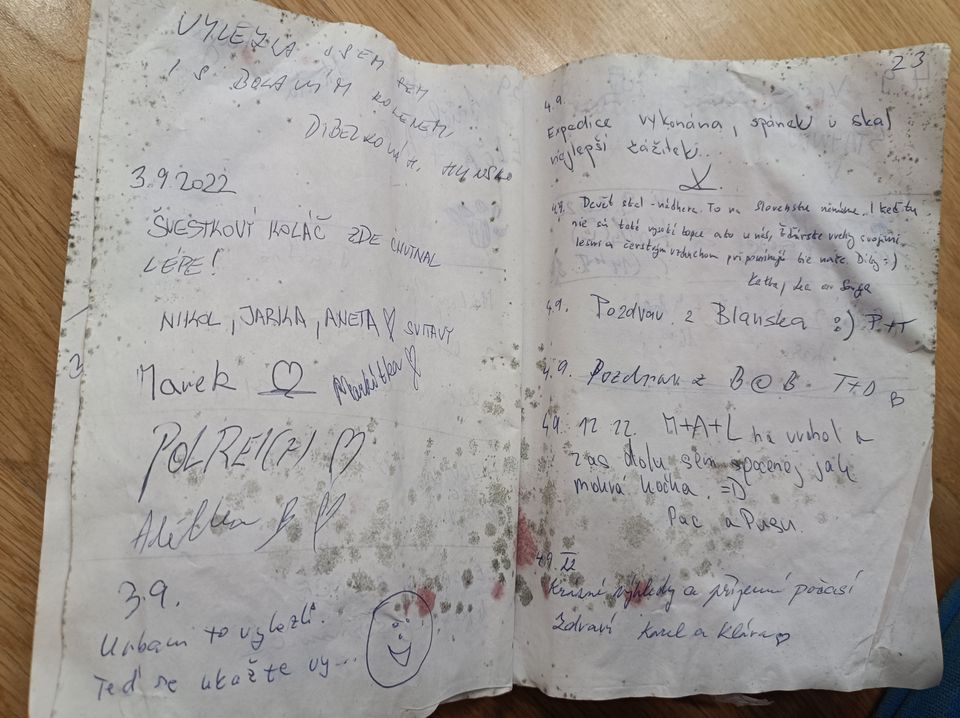 VYLEZLA JSEM SEM
I S BOLAVÝM KOLENEM,
3.9.2022
ŠVESTKOVÝ KOLÁČ ZDE CHUTNAL
LÉPE!
NIKOL, JARKA, ANETA SVITAVY
Marek
Markétka
POLREICH
Adélka B
3.9.
Urbani to vylezli.
Teď se ukažte vy...
23
4.9.
Expedice vykonána, spánek u skal
nejlepší zážitek.
4.9. Devět skal - nádhera. To na Slovensku nemáme. I keď tu
nie sú také vysoké kopce ako u nás, Žďárske vrchy svojimi
lesmi a čerstvým vzduchom pripomínajú tie naše. Díky =)
Katka,
4.9. Pozdrav z Blanska :) P+T
4.9. Pozdrav z B@B T+D B
4.9. 12 22 M+A+L na vrchol a
zas dolu sem spocenej jak
mokrá kočka. =D
Pac a Pusu.
4.9. 22
Krásné výhledy a příjemné počasí
Zdraví Karel a Klára